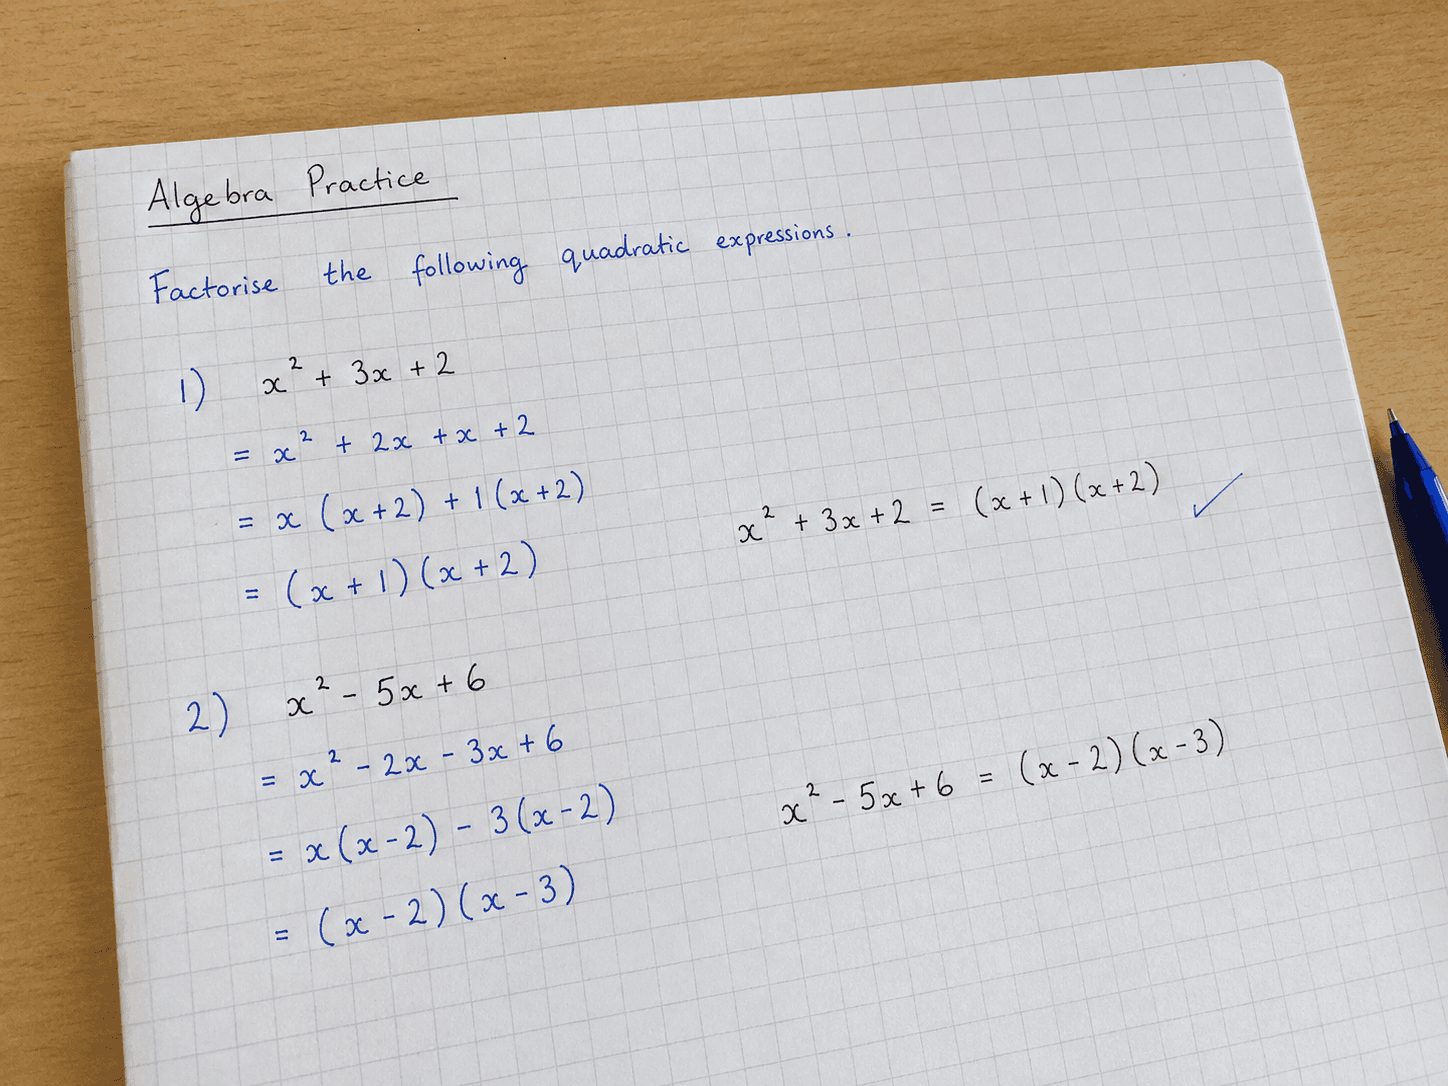 Algebra Practice
Factorise the following quadratic expressions.
1) x² + 3x + 2
= x² + 2x + x + 2
= x (x + 2) + 1 (x + 2)
= (x + 1) (x + 2)
x² + 3x + 2 = (x + 1) (x + 2) ✓
2) x² - 5x + 6
= x² - 2x - 3x + 6
= x (x - 2) - 3 (x - 2)
= (x - 2) (x - 3)
x² - 5x + 6 = (x - 2) (x - 3)